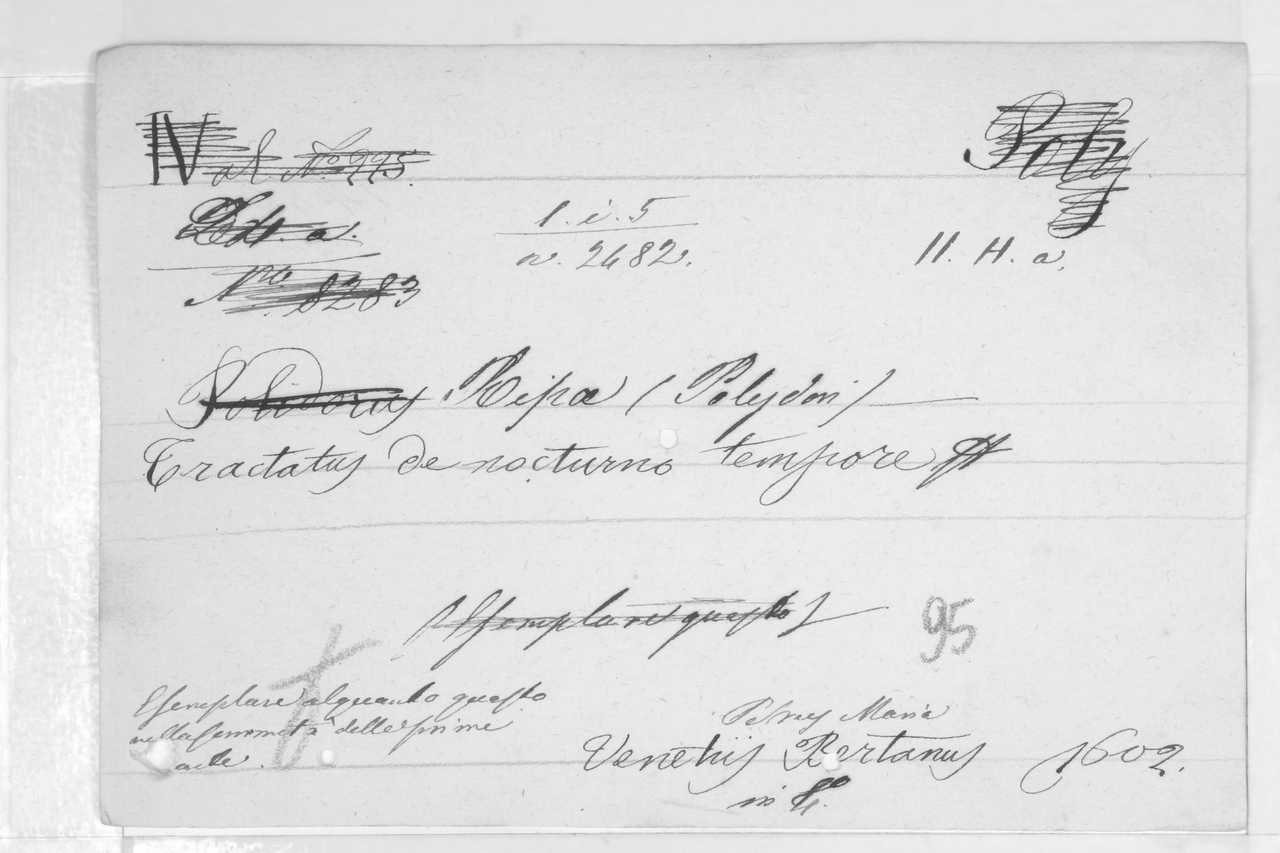 N al No 995. Poly
Edt. a. 1. i. 5
n. 2482. 11. H. a.
Nro. 8283
Polidorus Ripa (Polydori)
Tractatus de nocturno tempore
(Esemplare guasto) 95
Esemplare alquanto guasto
nella sommità delle prime
carte.
Petrus Maria
Venetiis Bertanus 1602.
in